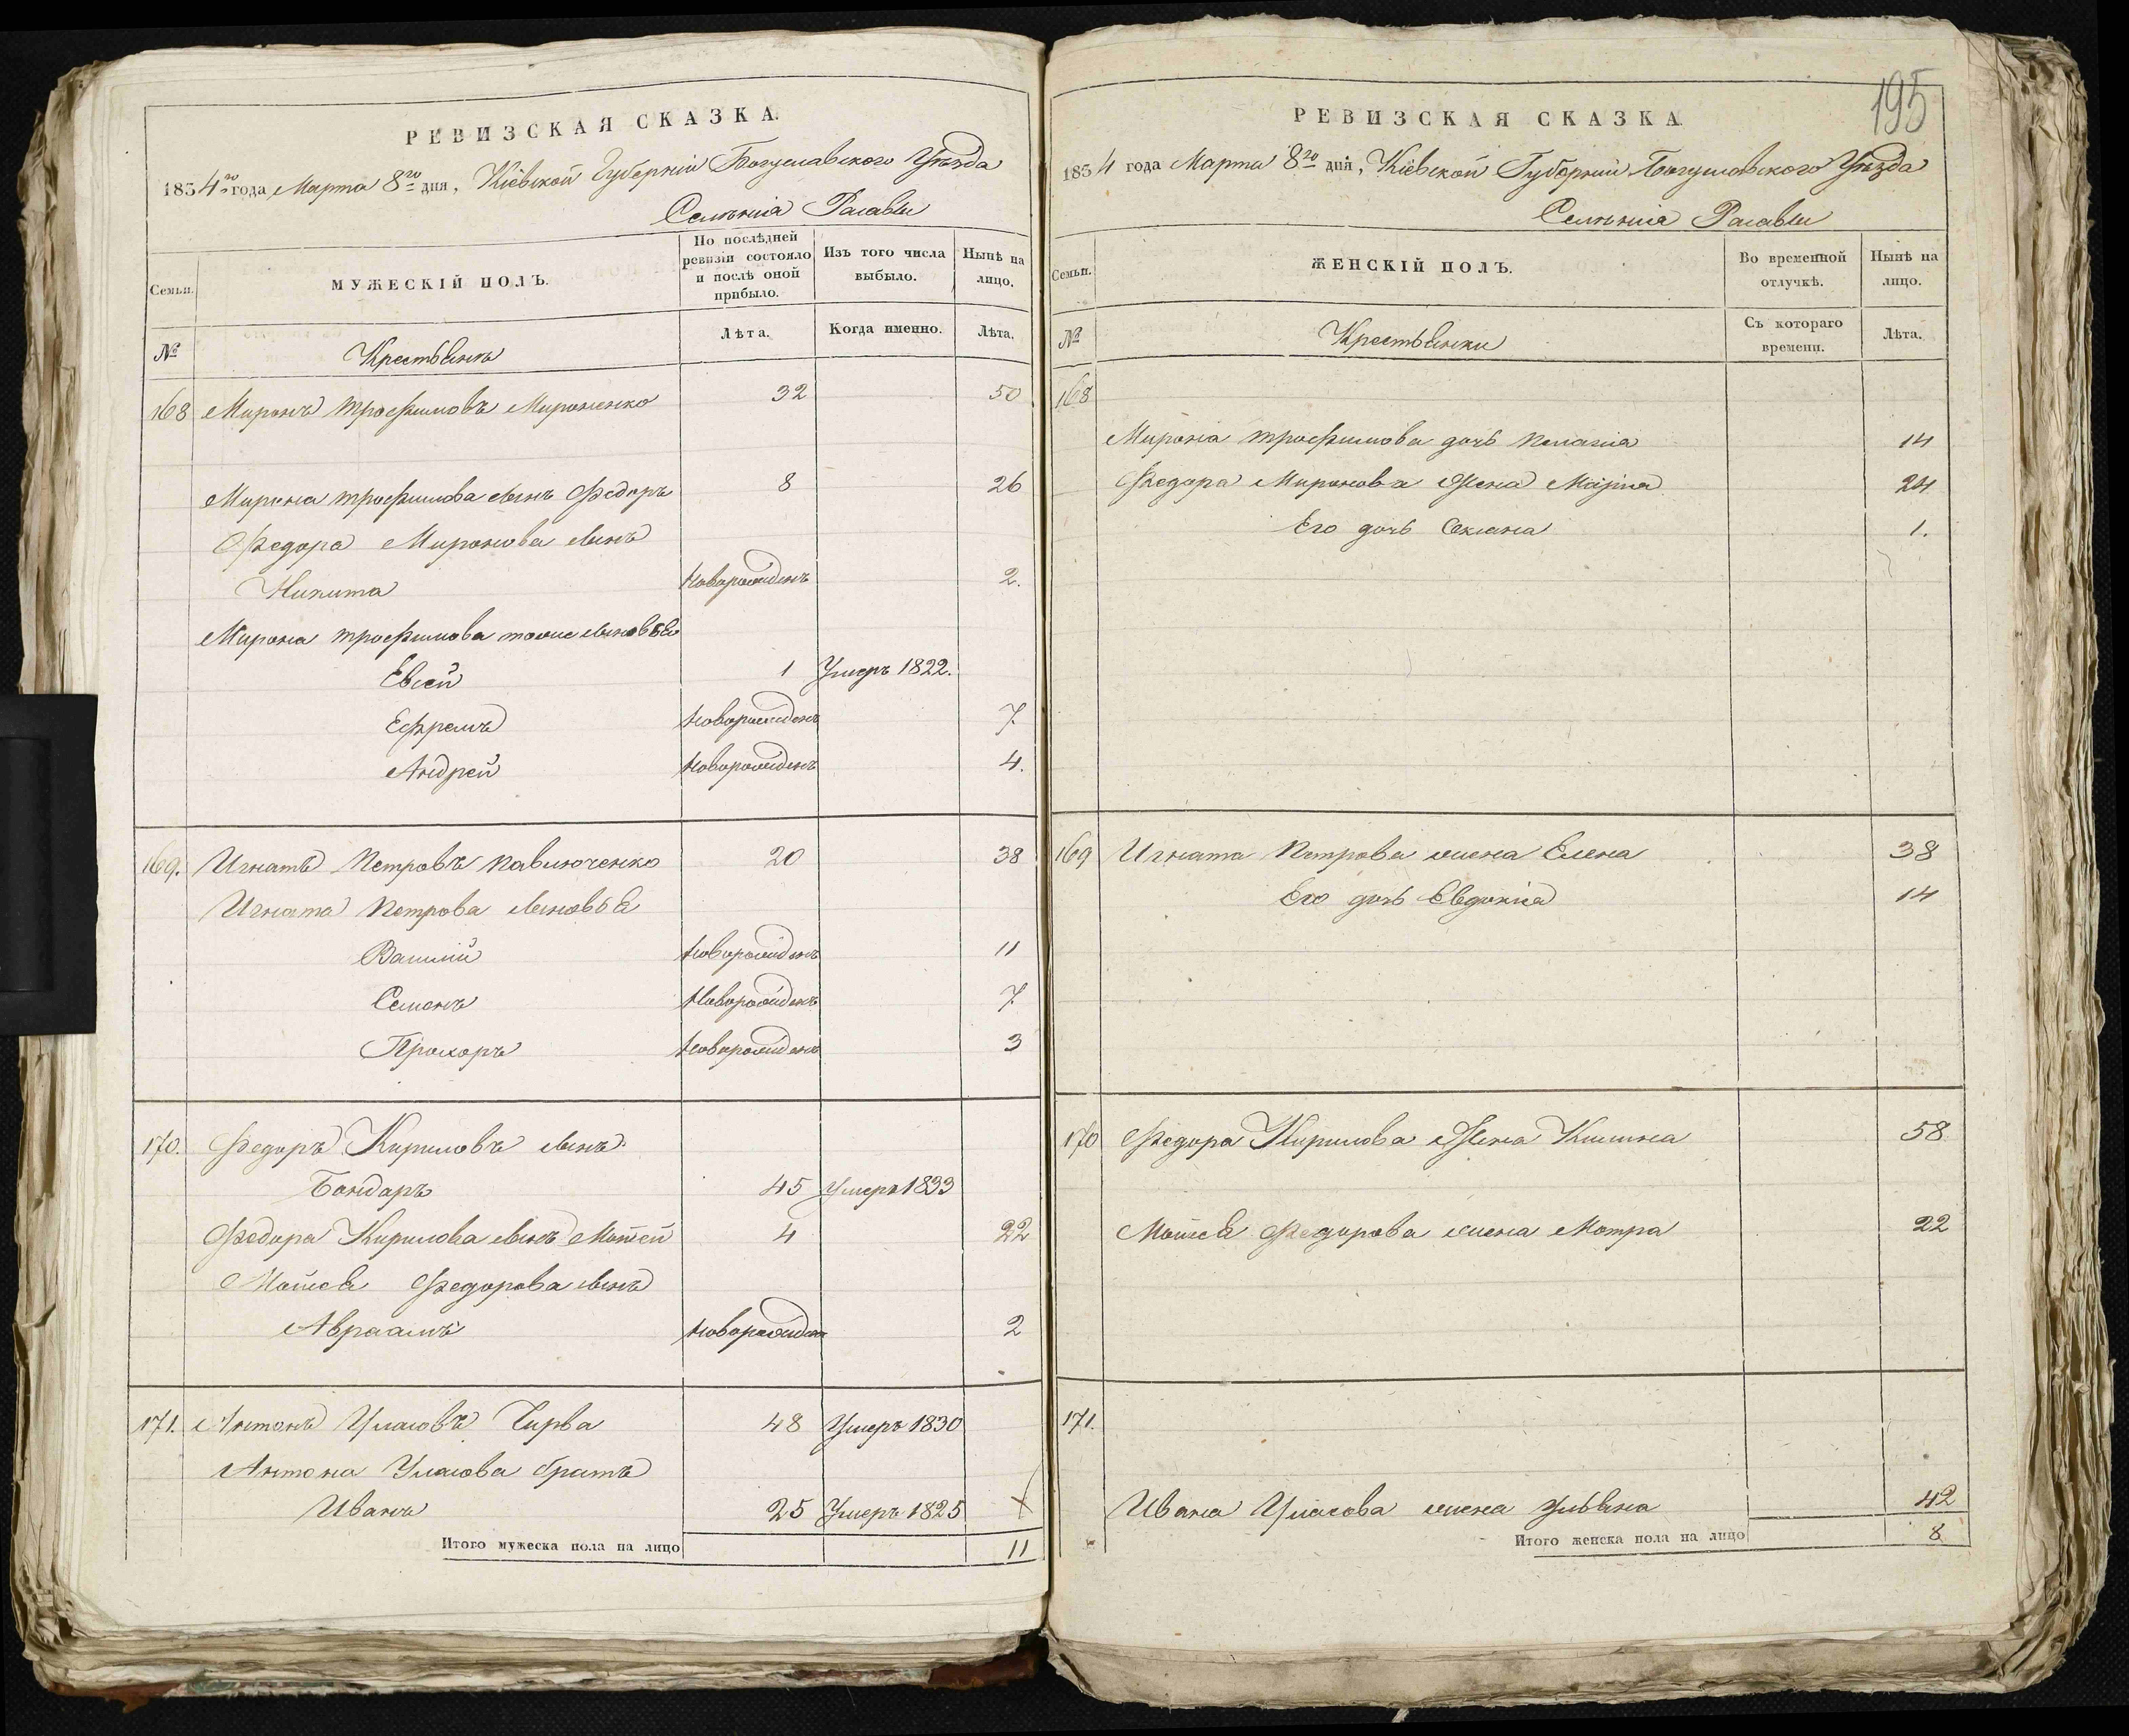 РЕВИЗСКАЯ СКАЗКА.
1834го года Марта 8го дня, Кіевской Губерніи Богуславского Уѣзда
Селенія Расавы
Семьи.
МУЖЕСКІЙ ПОЛЪ.
По послѣдней ревизіи состояло и послѣ оной прибыло.
Изъ того числа выбыло.
Нынѣ на лицо.
№
Крестьянъ
Лѣта.
Когда именно.
Лѣта.
168 Миронъ Трофимовъ Мироненко 32 50
Мирона Трофимова сынъ Федоръ 8 26
Федора Миронова сынъ
Никита новорожденъ 2.
Мирона Трофимова сыновья
Евсей 1 Умеръ 1822.
Ефремъ новорожденъ 7
Андрей новорожденъ 4.
169. Игнатъ Петровъ Павлюченко 20 38
Игната Петрова сыновья
Василий новорожденъ 11
Семенъ Новорожденъ 7
Прохоръ новорожденъ 3
170. Федоръ Кириловъ сынъ
Бондарь 45 Умеръ 1833
Федора Кирилова сынъ Мотей 4 22
Мотея Федорова сынъ
Авраамъ новорожденъ 2
171. Антонъ Уласовъ Чирва 48 Умеръ 1830
Антона Уласова братъ
Иванъ 25 Умеръ 1825
Итого мужеска пола на лицо 11
195
РЕВИЗСКАЯ СКАЗКА.
1834 года Марта 8го дня, Кіевской Губерніи Богуславского Уѣзда
Селенія Расавы
Семьи.
ЖЕНСКІЙ ПОЛЪ.
Во временной отлучкѣ.
Нынѣ на лицо.
№
Крестьянки
Съ котораго времени.
Лѣта.
168
Мирона Трофимова дочь Пелагія 14
Федора Миронова Жена Марія 24
Его дочь 1.
169 Игната Петрова жена Елена 38
Его дочь Евдокія 14
170 Федора Кирилова Жена 58
Мотея Федорова жена Мотра 22
171.
Ивана Уласова жена Ульяна 42
Итого женска пола на лицо 8